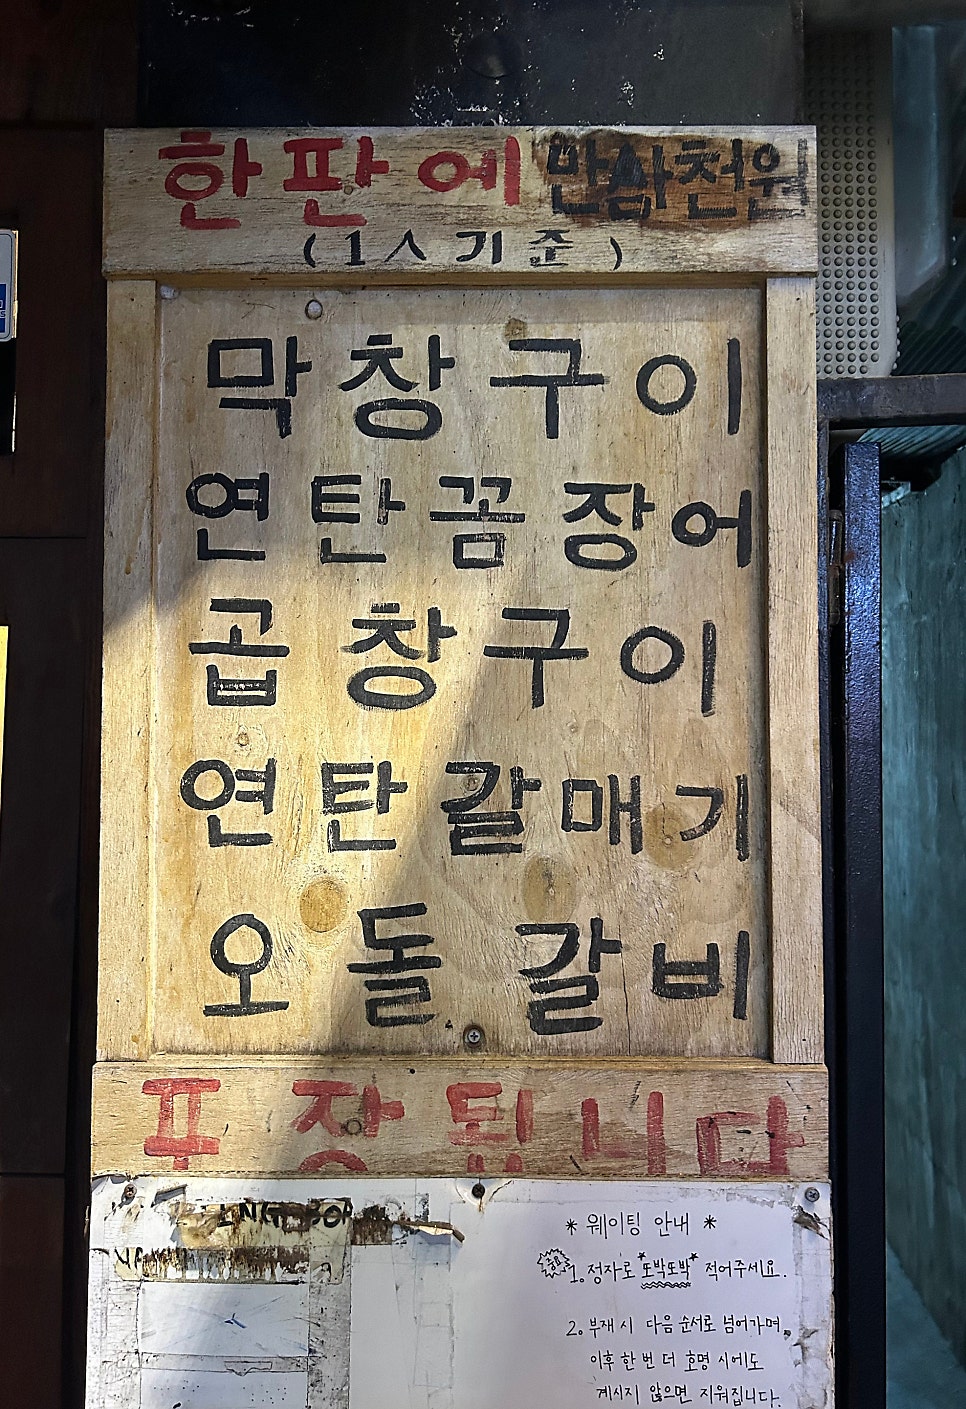 한판에 만삼천원
(1人기준)
막창구이
연탄꼼장어
곱창구이
연탄갈매기
오돌갈비
포장됩니다
* 웨이팅 안내 *
1. 정자로 "또박또박" 적어주세요.
2. 부재 시 다음 순서로 넘어가며,
이후 한 번 더 호명 시에도
계시지 않으면 지워집니다.